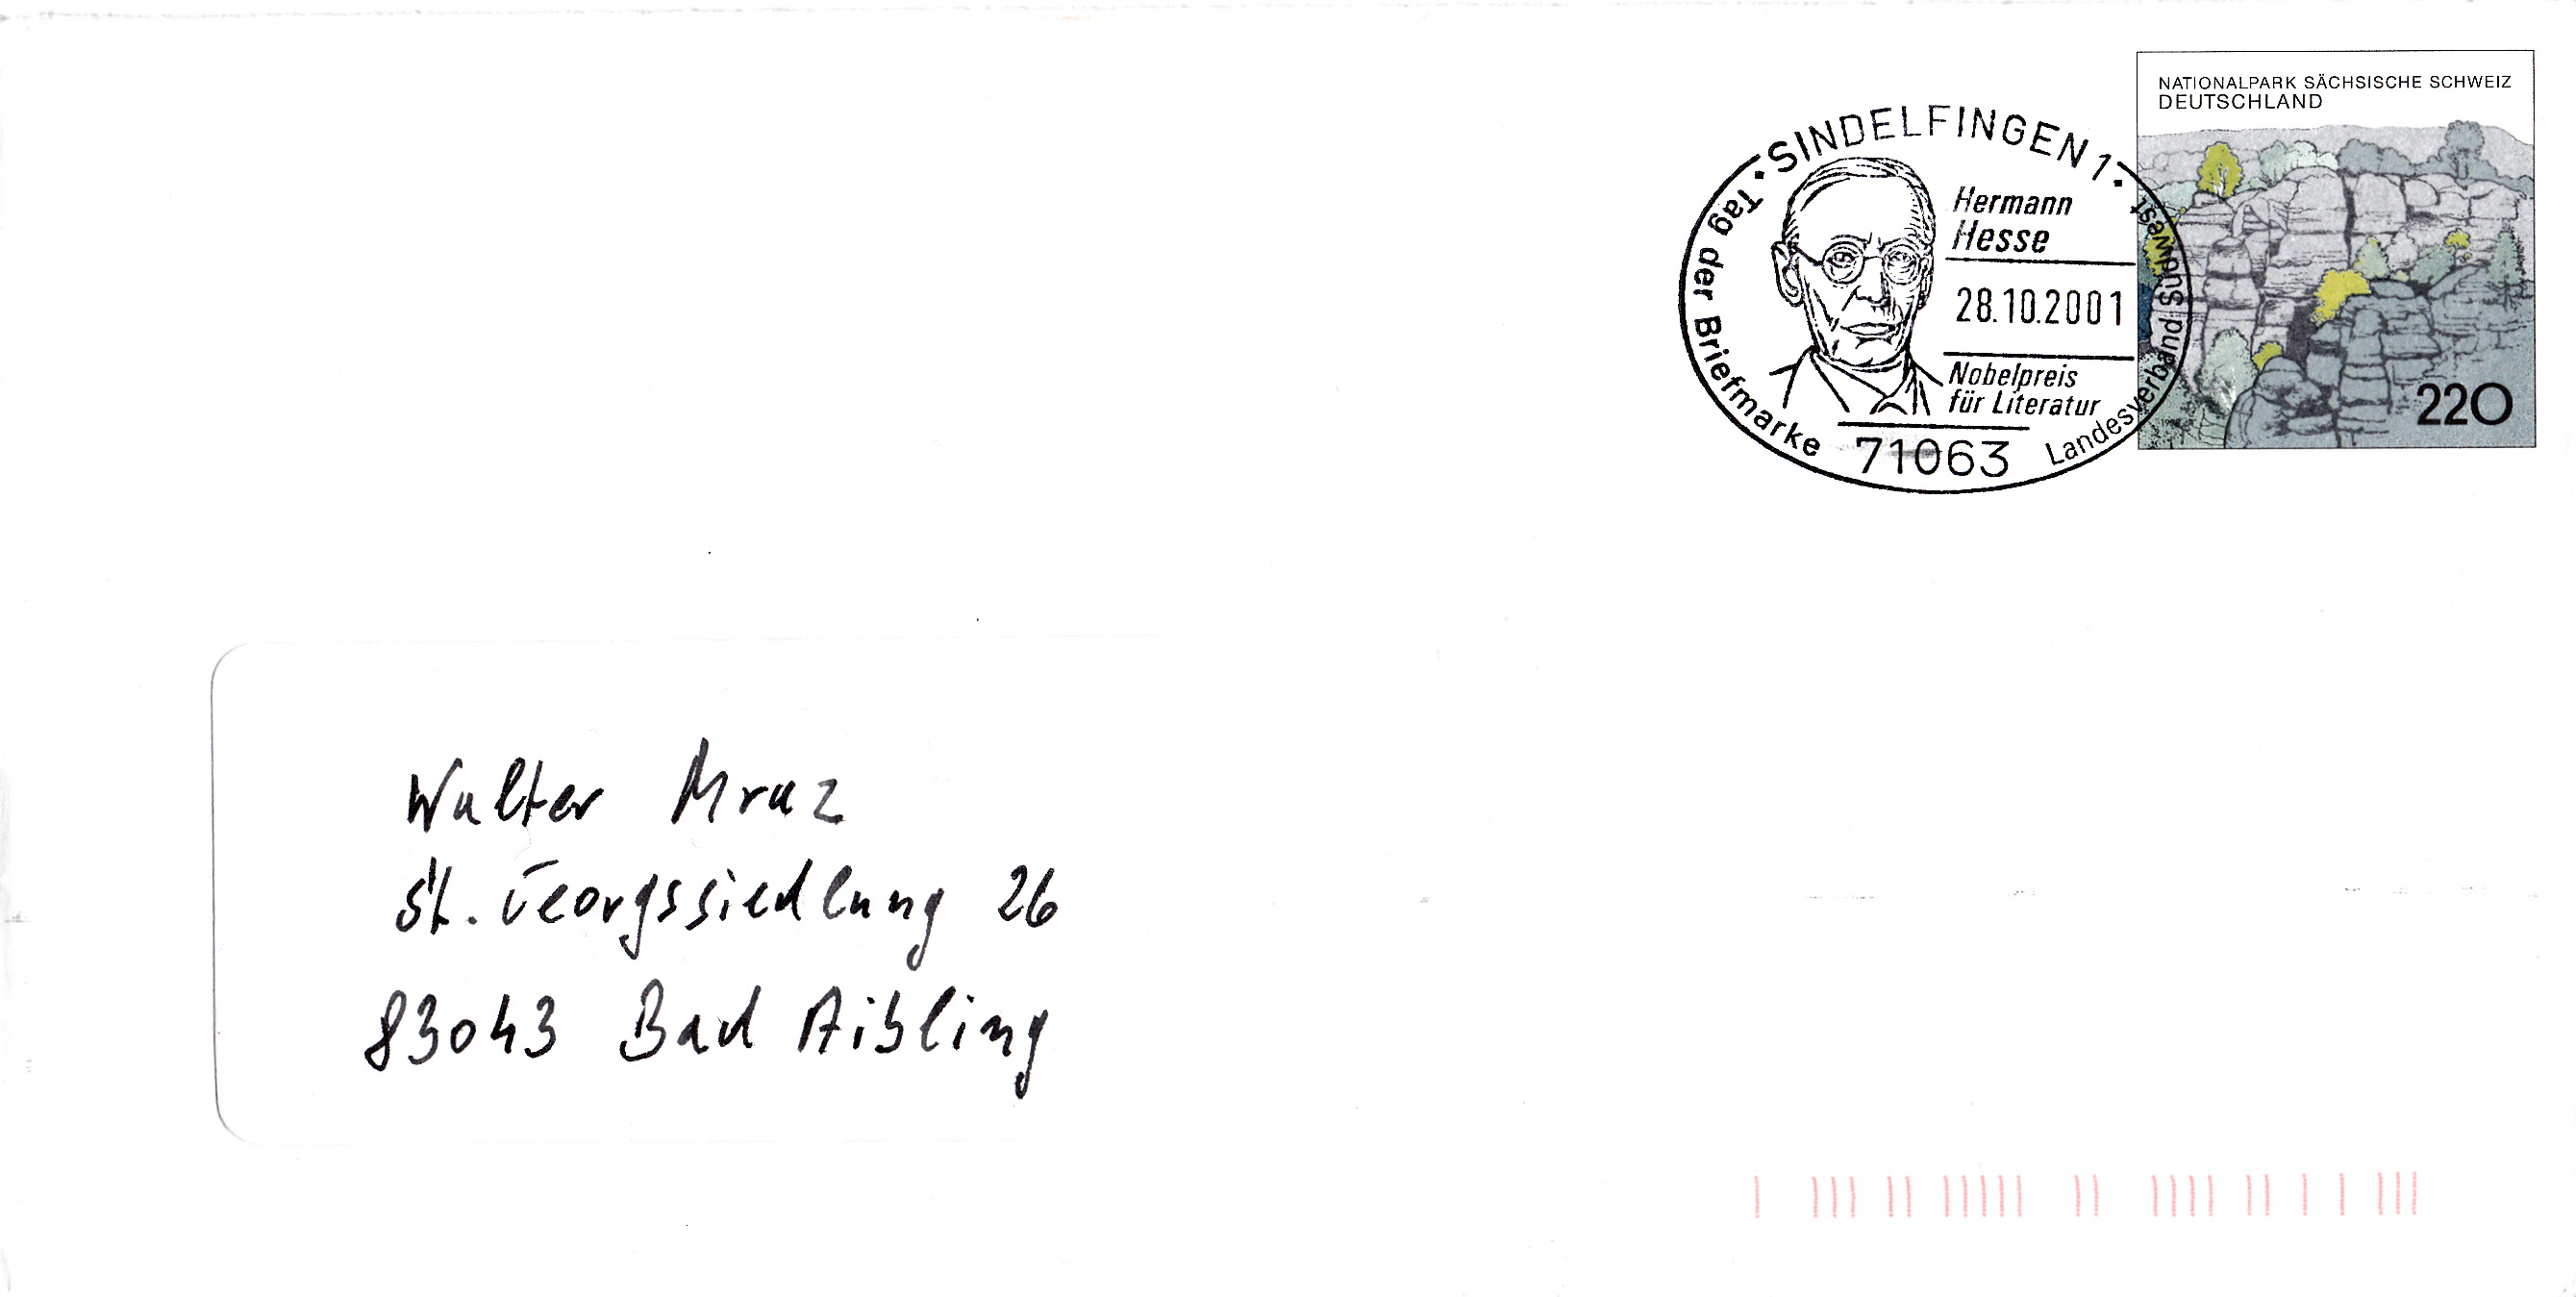 NATIONALPARK SÄCHSISCHE SCHWEIZ
DEUTSCHLAND
220
• SINDELFINGEN 1 •
Tag der Briefmarke
Hermann
Hesse
28.10.2001
Nobelpreis
für Literatur
71063
Landesverband Südwest
Walter Mraz
St. Georgssiedlung 26
83043 Bad Aibling